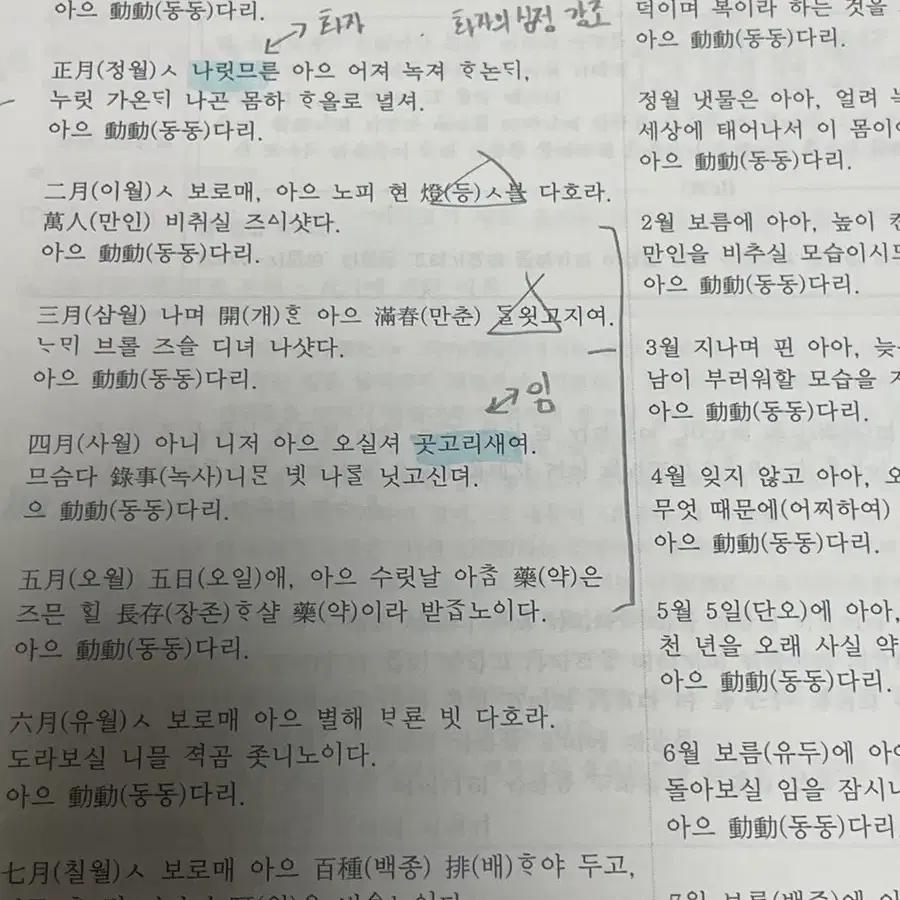 아으 動動(동동)다리.
화자 화자의 심정 강조
正月(정월)ㅅ 나릿므른 아으 어져 녹져 ᄒᆞ논ᄃᆡ,
누릿 가온ᄃᆡ 나곤 몸하 ᄒᆞ올로 녈셔.
아으 動動(동동)다리.
二月(이월)ㅅ 보로매, 아으 노피 현 燈(등)ㅅ블 다호라.
萬人(만인) 비취실 즈ᅀᅵ샷다.
아으 動動(동동)다리.
三月(삼월) 나며 開(개)ᄒᆞᆫ 아으 滿春(만춘) ᄃᆞᆯ욋고지여.
ᄂᆞᄆᆡ 브롤 즈ᅀᅳᆯ 디녀 나샷다.
아으 動動(동동)다리.
임
四月(사월) 아니 니저 아으 오실셔 곳고리새여.
므슴다 錄事(녹사)니ᄆᆞᆫ 녯 나ᄅᆞᆯ 닛고신뎌.
으 動動(동동)다리.
五月(오월) 五日(오일)애, 아으 수릿날 아ᄎᆞᆷ 藥(약)은
즈믄 힐 長存(장존)ᄒᆞ샬 藥(약)이라 받ᄌᆞᆸ노이다.
아으 動動(동동)다리.
六月(유월)ㅅ 보로매 아으 별해 ᄇᆞ룐 빗 다호라.
도라보실 니믈 젹곰 좃니노이다.
아으 動動(동동)다리.
七月(칠월)ㅅ 보로매 아으 百種(백종) 排(배)ᄒᆞ야 두고,
덕이며 복이라 하는 것을
아으 動動(동동)다리.
정월 냇물은 아아, 얼려
세상에 태어나서 이 몸이
아으 動動(동동)다리.
2월 보름에 아아, 높이
만인을 비추실 모습이시
아으 動動(동동)다리.
3월 지나며 핀 아아,
남이 부러워할 모습을
아으 動動(동동)다리.
4월 잊지 않고 아아,
무엇 때문에(어찌하여)
아으 動動(동동)다리.
5월 5일(단오)에 아아,
천 년을 오래 사실 약
아으 動動(동동)다리.
6월 보름(유두)에
돌아보실 임을
아으 動動(동동)다리
7월 보름(백중)에